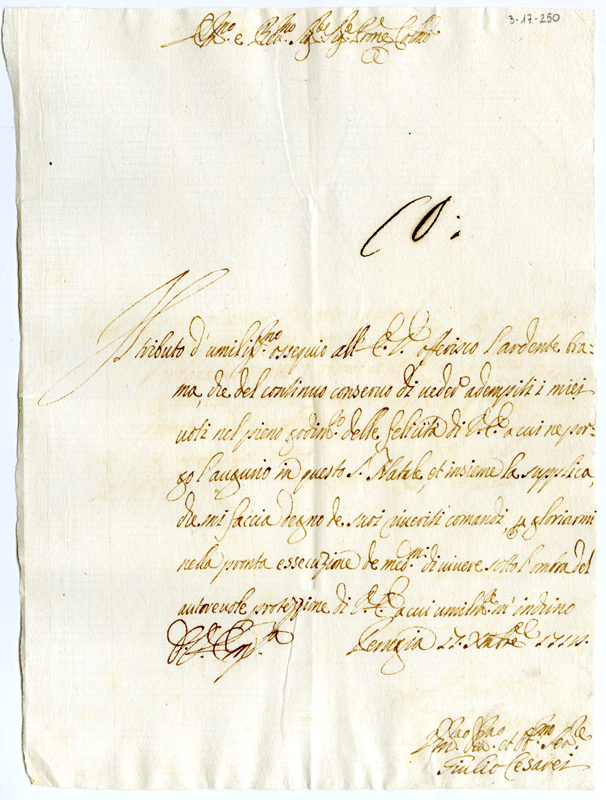 3-17-290
Em̃o e Reṽmo Sig.re Sig.re Pron̄e Col̃mo
Co:
In tributo d'umiliss.mo ossequio all'E.V. offerisco l'ardente bra=
ma, che del continuo conservo di veder' adempiti i miei
voti nel pieno godim.to delle felicità di V.E. a cui ne por=
go l'augurio in questo S. Natale, et insieme la supplica,
che mi faccia degno de suoi riveriti comandi, p gloriarmi
nella pronta essecuzione de med.mi di vivere sotto l'ombra del
autorevole protezzione di V.E. a cui umilm.te m'inchino
Perugia 17. Xmbre 1714.
Giulio Cesarei